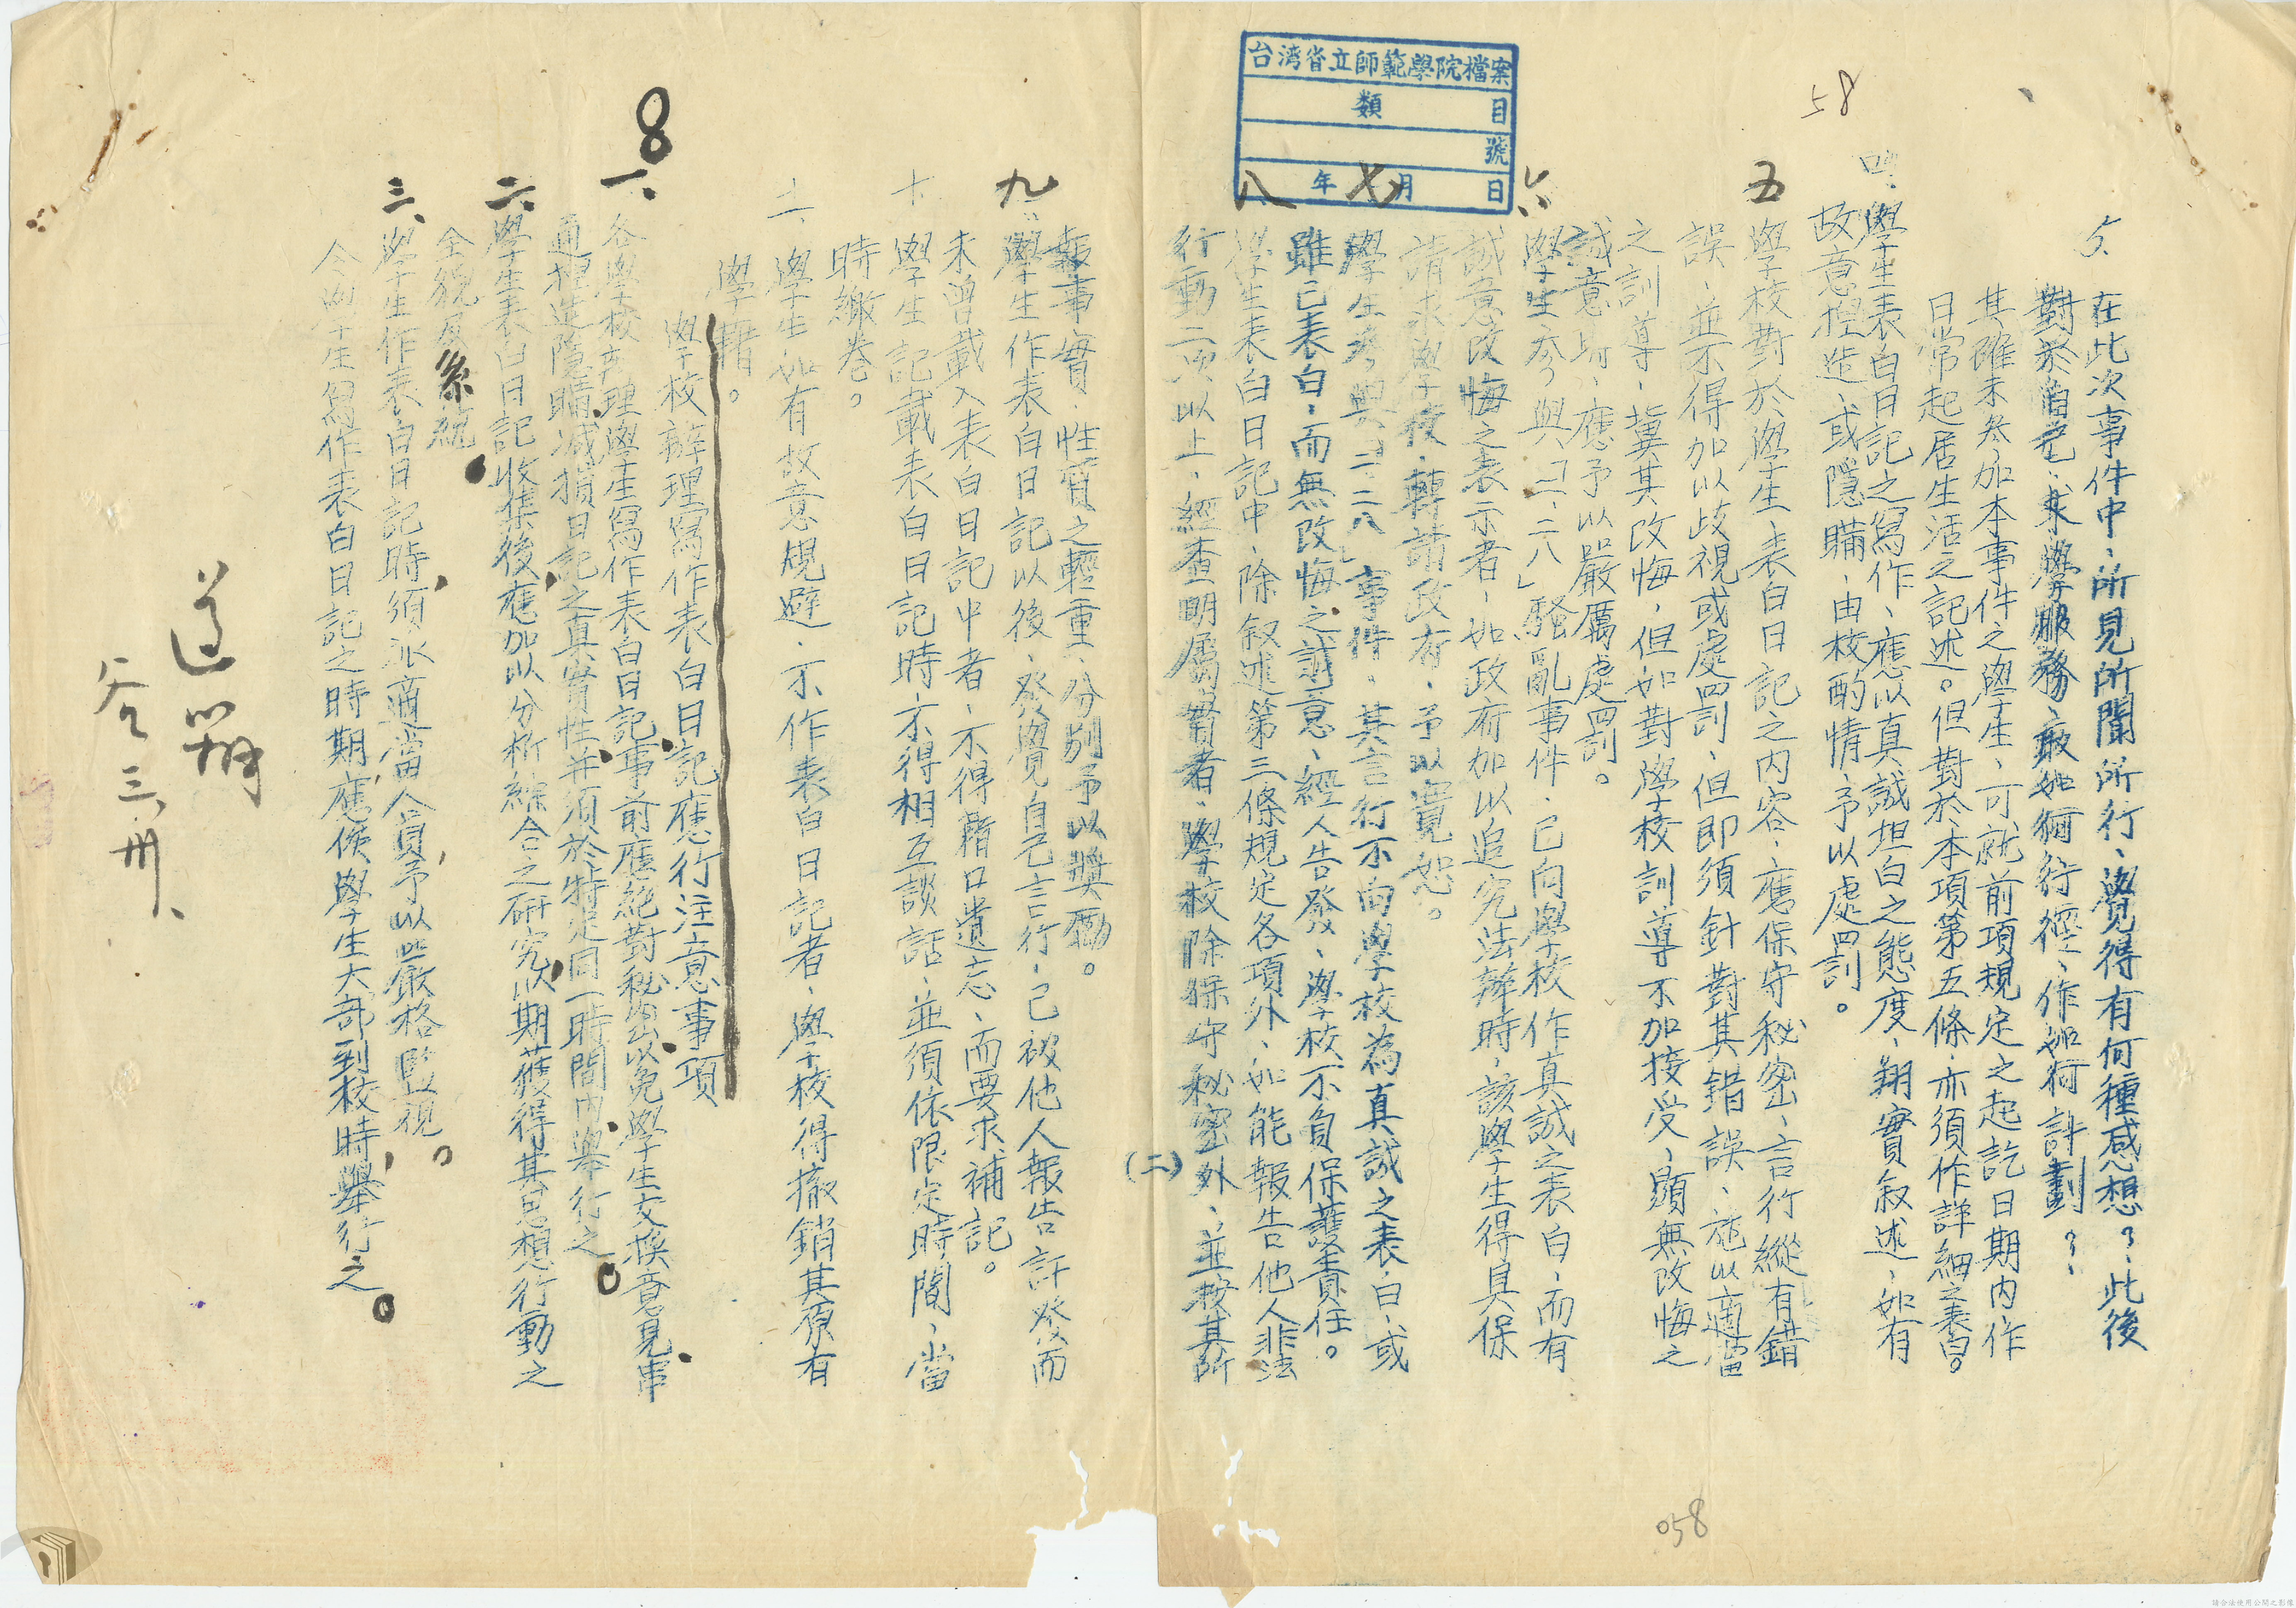 台湾省立師範學院檔案
類 目
號
年 月 日
58
5、在此次事件中、所見所聞所行、覺得有何種感想？、此後
對於自己、求學服務、敢如何行徑、作如何計劃？、
其確未参加本事件之學生、可就前項規定之起訖日期內、作
日常起居生活之記述。但對於本項第五條、亦須作詳細之表白。
四、學生表白日記之寫作、應以真誠坦白之態度、翔實叙述、如有
故意捏造、或隱瞞、由校酌情、予以處罰。
五 學校對於學生、表白日記之內容、應保守秘密、言行縱有錯
誤、並不得加以歧視或處罰、但即須針對其錯誤、施以適當
之訓導、冀其改悔、但如對學校訓導不加接受、顯無改悔之
誠意時、應予以嚴厲處罰。
六、學生参與「二、二八」騷亂事件、已向學校作真誠之表白、而有
誠意改悔之表示者、如政府加以追究法辦時、該學生得具保
請求學校、轉請政府、予以寬恕。
七 學生参與「二、二八」事件、其言行不向學校為真誠之表白、或
雖已表白、而無改悔之誠意、經人告發、學校不負保護責任。
八、學生表白日記中、除叙述第三條規定各項外、如能報告他人非法
行動二次以上、經查明屬實者、學校除保守秘密外、並按其所
(二)
報事實、性質之輕重、分別予以獎勵。
九、學生作表白日記以後、發覺自己言行、已被他人報告訐發而
未曾載入表白日記中者、不得藉口遺忘、而要求補記。
十、學生記載表白日記時、不得相互談話、並須依限定時間、當
時繳卷。
二、學生如有故意規避、不作表白日記者、學校得撤銷其原有
學籍。
學校辦理寫作表白日記應行注意事項
8
一、各學校辦理學生寫作表白日記事前應絕對秘密以免學生交換意見串
通捏造隱瞞減損日記之真實性並須於特定同一時間內舉行之。
二、學生表白日記收集後應加以分析綜合之研究以期獲得其思想行動之
全貌及系統。
三、學生作表白日記時須派適當人員予以嚴格監視。
令向學生寫作表白日記之時期應候學生大部到校時舉行之。
遵辦
三、卅、
058